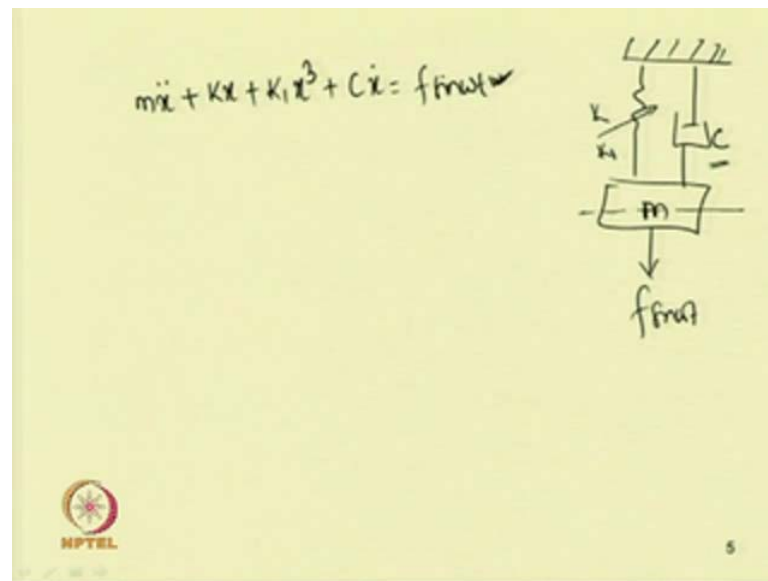 mẍ + Kx + K₁x³ + Cẋ = f sinωt
K
K₁
C
m
f sinωt
NPTEL
5